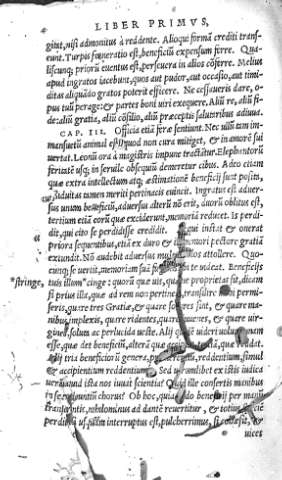 LIBER PRIMVS,
giunt, nisi admonitus à reddente. Alioqui formã crediti trans-
eunt. Turpis fœneratio est, beneficiũ expensum ferre. Qua-
liscunq; priorũ euentus est, perseuera in alios cõferre. Melius
apud ingratos iacebunt, quos aut pudor, aut occasio, aut timi-
ditas aliquãdo gratos poterit efficere. Ne cessaueris dare, o-
pus tuũ perage: & partes boni uiri exequere. Aliũ re, aliũ fi-
de: aliũ gratia, aliũ cõsilio, aliũ præceptis salutaribus adiuua.
CAP. III. Officia etiã feræ sentiunt. Nec ullũ tam im-
mansuetũ animal est, quod non cura mitiget, & in amorẽ sui
uertat. Leonũ ora à magistris impune tractãtur. Elephantorũ
feritatẽ usq; in seruile obsequiũ demeretur cibus. Adeo etiam
quæ extra intellectum atq; æstimationẽ beneficij sunt posita,
assiduitas tamen meriti pertinacis euincit. Ingratus est aduer-
sus unum beneficiũ, aduersus alterũ nõ erit, duorũ oblitus est,
tertium etiã eorũ quæ exciderunt, memoriã reducet. Is perdi-
dit, qui cito se perdidisse credidit. qui instat & onerat
priora sequentibus, etiã ex duro & immemori pectore gratiã
extundit. Nõ audebit aduersus multa oculos attollere. Quo-
cunq; se uertit, memoriam suã
*stringe, tuis illum *cinge: quorũ quæ uis, quæue proprietas sit, dicam
si prius illa, quæ ad rem non pertinent, transilire
seris, quare tres Gratiæ, & quare sorores sint, & quare ma-
nibus implexis, quare ridentes, quare iuuenes, & quare uir-
gines, solutaq; ac perlucida ueste. Alij quidẽ uideri uolunt unam
esse, quæ det beneficiũ, alterã quæ accipiat, tertiã, quæ reddat.
Alij tria beneficiorũ genera, promerentium, reddentium, simul
& accipientium reddentiumq;. Sed utrumlibet ex istis iudica
uerũ, quid ista nos iuuat scientia? Quid ille consertis manibus
in se redeuntiũ chorus? Ob hoc, quia ordo beneficij per manũ
transeuntis, nihilominus ad dantẽ reuertitur, & totius speciẽ
perdit, si usquam interruptus est, pulcherrimus, si cohæsit, &
uices